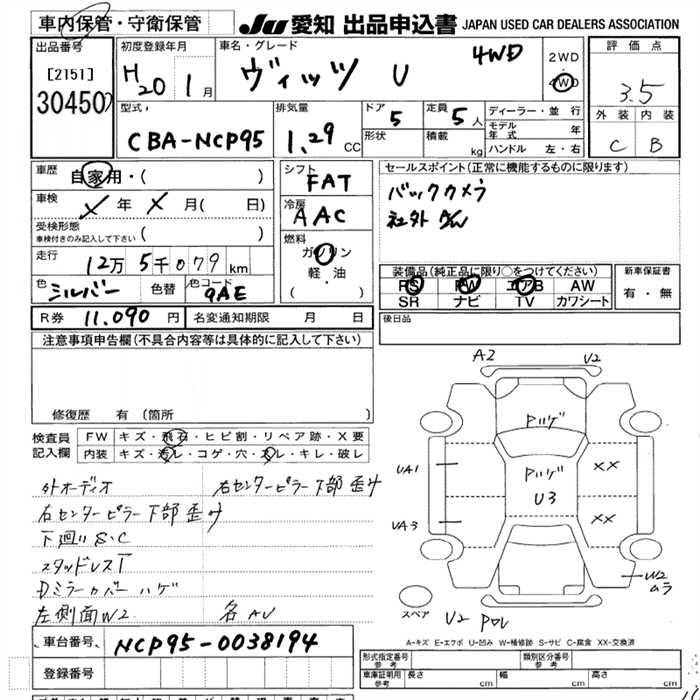 車内保管・守衛保管
JU 愛知 出品申込書 JAPAN USED CAR DEALERS ASSOCIATION
出品番号
[2151]
30450
初度登録年月
H20 1月
車名・グレード
ヴィッツ U 4WD
2WD
・
4WD
評価点
3.5
外装 内装
C B
型式
CBA-NCP95
排気量
1.29 CC
ドア 5
形状
定員 5人
積載 kg
ディーラー・並行
モデル年式 年
ハンドル 左・右
車歴
自家用・( )
車検
X 年 X 月( 日)
受検形態
車検付きのみ記入して下さい ( )
走行
12万5千079 km
色 シルバー 色替 色コード 9AE
シフト
FAT
冷房
AAC
燃料
ガソリン
軽・油
( )
セールスポイント(正常に機能するものに限ります)
バックカメラ
社外
装備品(純正品に限り○をつけてください)
PS PW エアB AW
SR ナビ TV カワシート
新車保証書
有・無
R券 11.090 円 名変通知期限 月 日
後日品
注意事項申告欄(不具合内容等は具体的に記入して下さい)
修復歴 有 (箇所
検査員記入欄
FW キズ・飛石・ヒビ割・リペア跡・X要
内装 キズ・汚レ・コゲ・穴・スレ・キレ・破レ
外オーディオ
右センターピラー下部歪み
右センターピラー下部歪み
下廻りS・C
スタッドレスT
Dミラーカバーハゲ
左側面W2 各AU
A2 V2
Pハゲ
UA1 XX
Pハゲ
U3
UA3 XX
W2
ムラ
スペア
V2 Pハレ
A-キズ E-エクボ U-凹み W-補修跡 S-サビ C-腐食 XX-交換済
車台番号 NCP95-0038194
登録番号
形式指定番号
参考
類別区分番号
参考
車庫証明用
参考
長さ cm 幅 cm 高さ cm